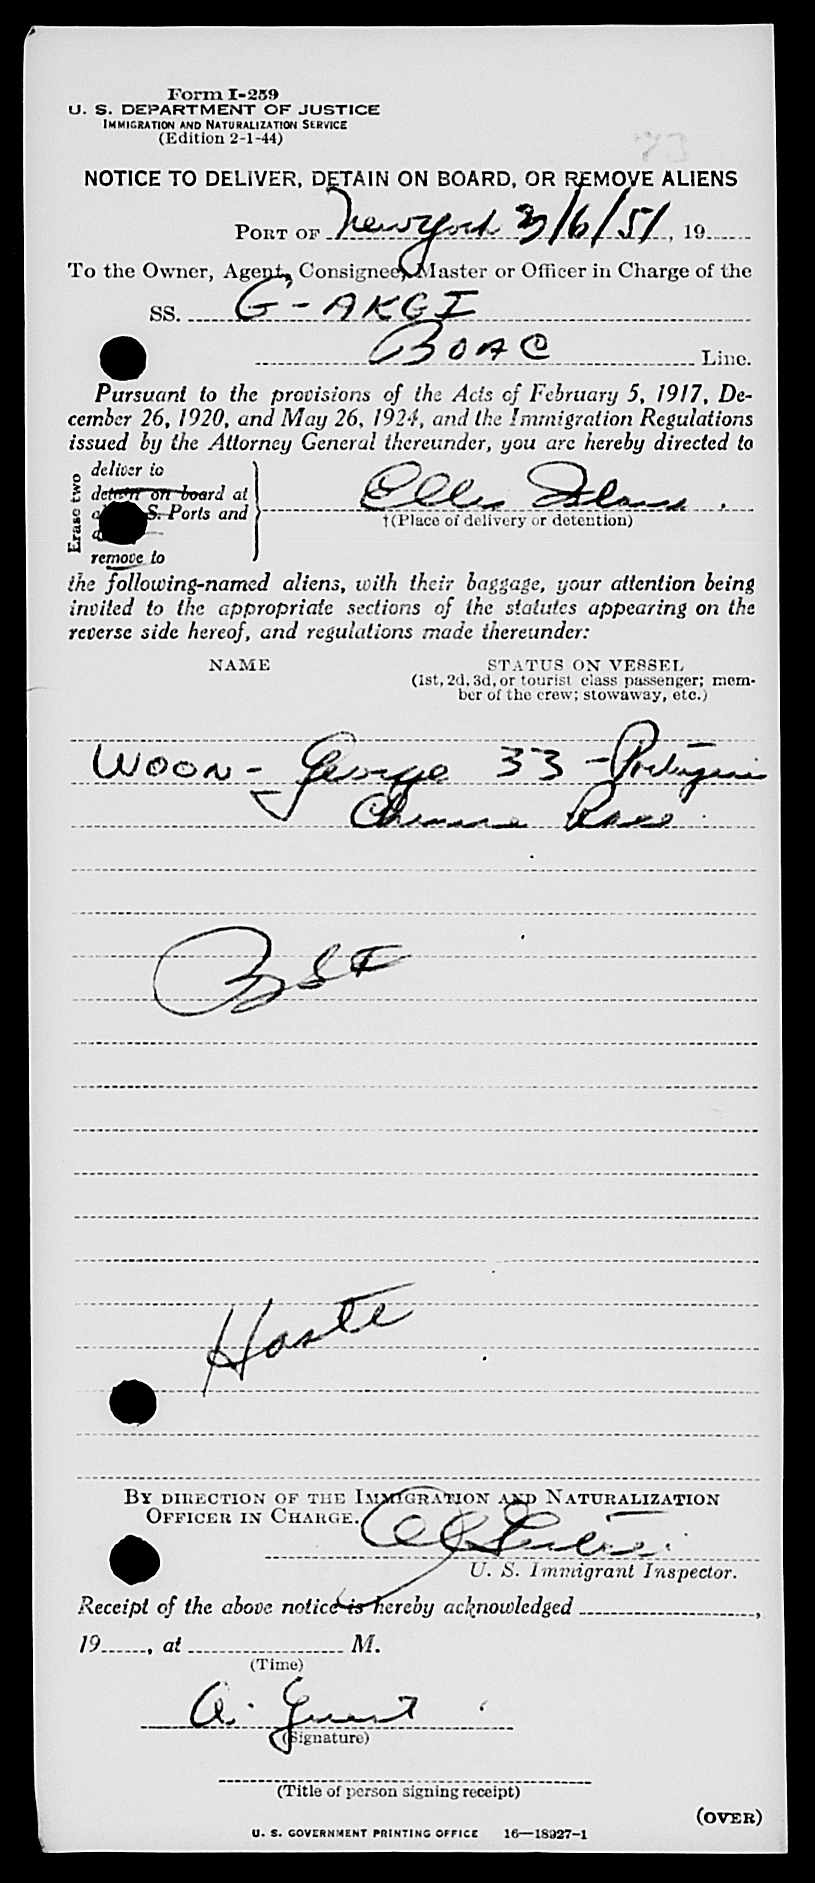 Form I-259
U. S. DEPARTMENT OF JUSTICE
IMMIGRATION AND NATURALIZATION SERVICE
(Edition 2-1-44)
NOTICE TO DELIVER, DETAIN ON BOARD, OR REMOVE ALIENS
PORT OF New York 3/6/51, 19
To the Owner, Agent, Consignee, Master or Officer in Charge of the
SS. G-AKGI
BOAC Line.
Pursuant to the provisions of the Acts of February 5, 1917, De-
cember 26, 1920, and May 26, 1924, and the Immigration Regulations
issued by the Attorney General thereunder, you are hereby directed to
Erase two
deliver to
detain on board at
S. Ports and
remove to
Ellis Island.
†(Place of delivery or detention)
the following-named aliens, with their baggage, your attention being
invited to the appropriate sections of the statutes appearing on the
reverse side hereof, and regulations made thereunder:
NAME STATUS ON VESSEL
(1st, 2d, 3d, or tourist class passenger; mem-
ber of the crew; stowaway, etc.)
WOON - George 33 - Portuguese
Chinese Race.
Haste
BY DIRECTION OF THE IMMIGRATION AND NATURALIZATION
OFFICER IN CHARGE.
U. S. Immigrant Inspector.
Receipt of the above notice is hereby acknowledged ,
19 , at M.
(Time)
(Signature)
(Title of person signing receipt)
(OVER)
U. S. GOVERNMENT PRINTING OFFICE 16—18927-1